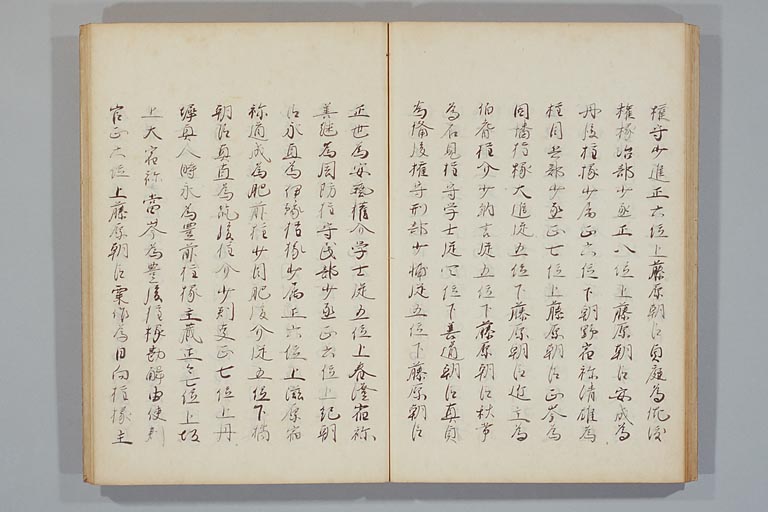 権守少進正六位上藤原朝臣貞庭為筑後
権掾治部少丞正八位上藤原朝臣安成為
丹後権掾少属正六位下朝野宿祢清雄為
権目兵部少丞正七位上藤原朝臣正岑為
因幡権掾大進従五位下藤原朝臣近主為
伯耆権介少納言従五位下藤原朝臣秋常
為石見権守学士従四位下善道朝臣真貞
為備後権守刑部少輔従五位下藤原朝臣
正世為安藝権介学士従五位上春澄宿祢
善縄為周防権守民部少丞正六位上紀朝
臣永直為伊豫権掾少属正六位上滋原宿
祢道成為肥前権少目肥後介従五位下橘
朝臣真直為筑後権介少判事正七位上丹
墀真人時永為豊前権掾主蔵正正七位上坂
上大宿祢當岑為豊後権掾勘解由使判
官正六位上藤原朝臣粟作為日向権掾主